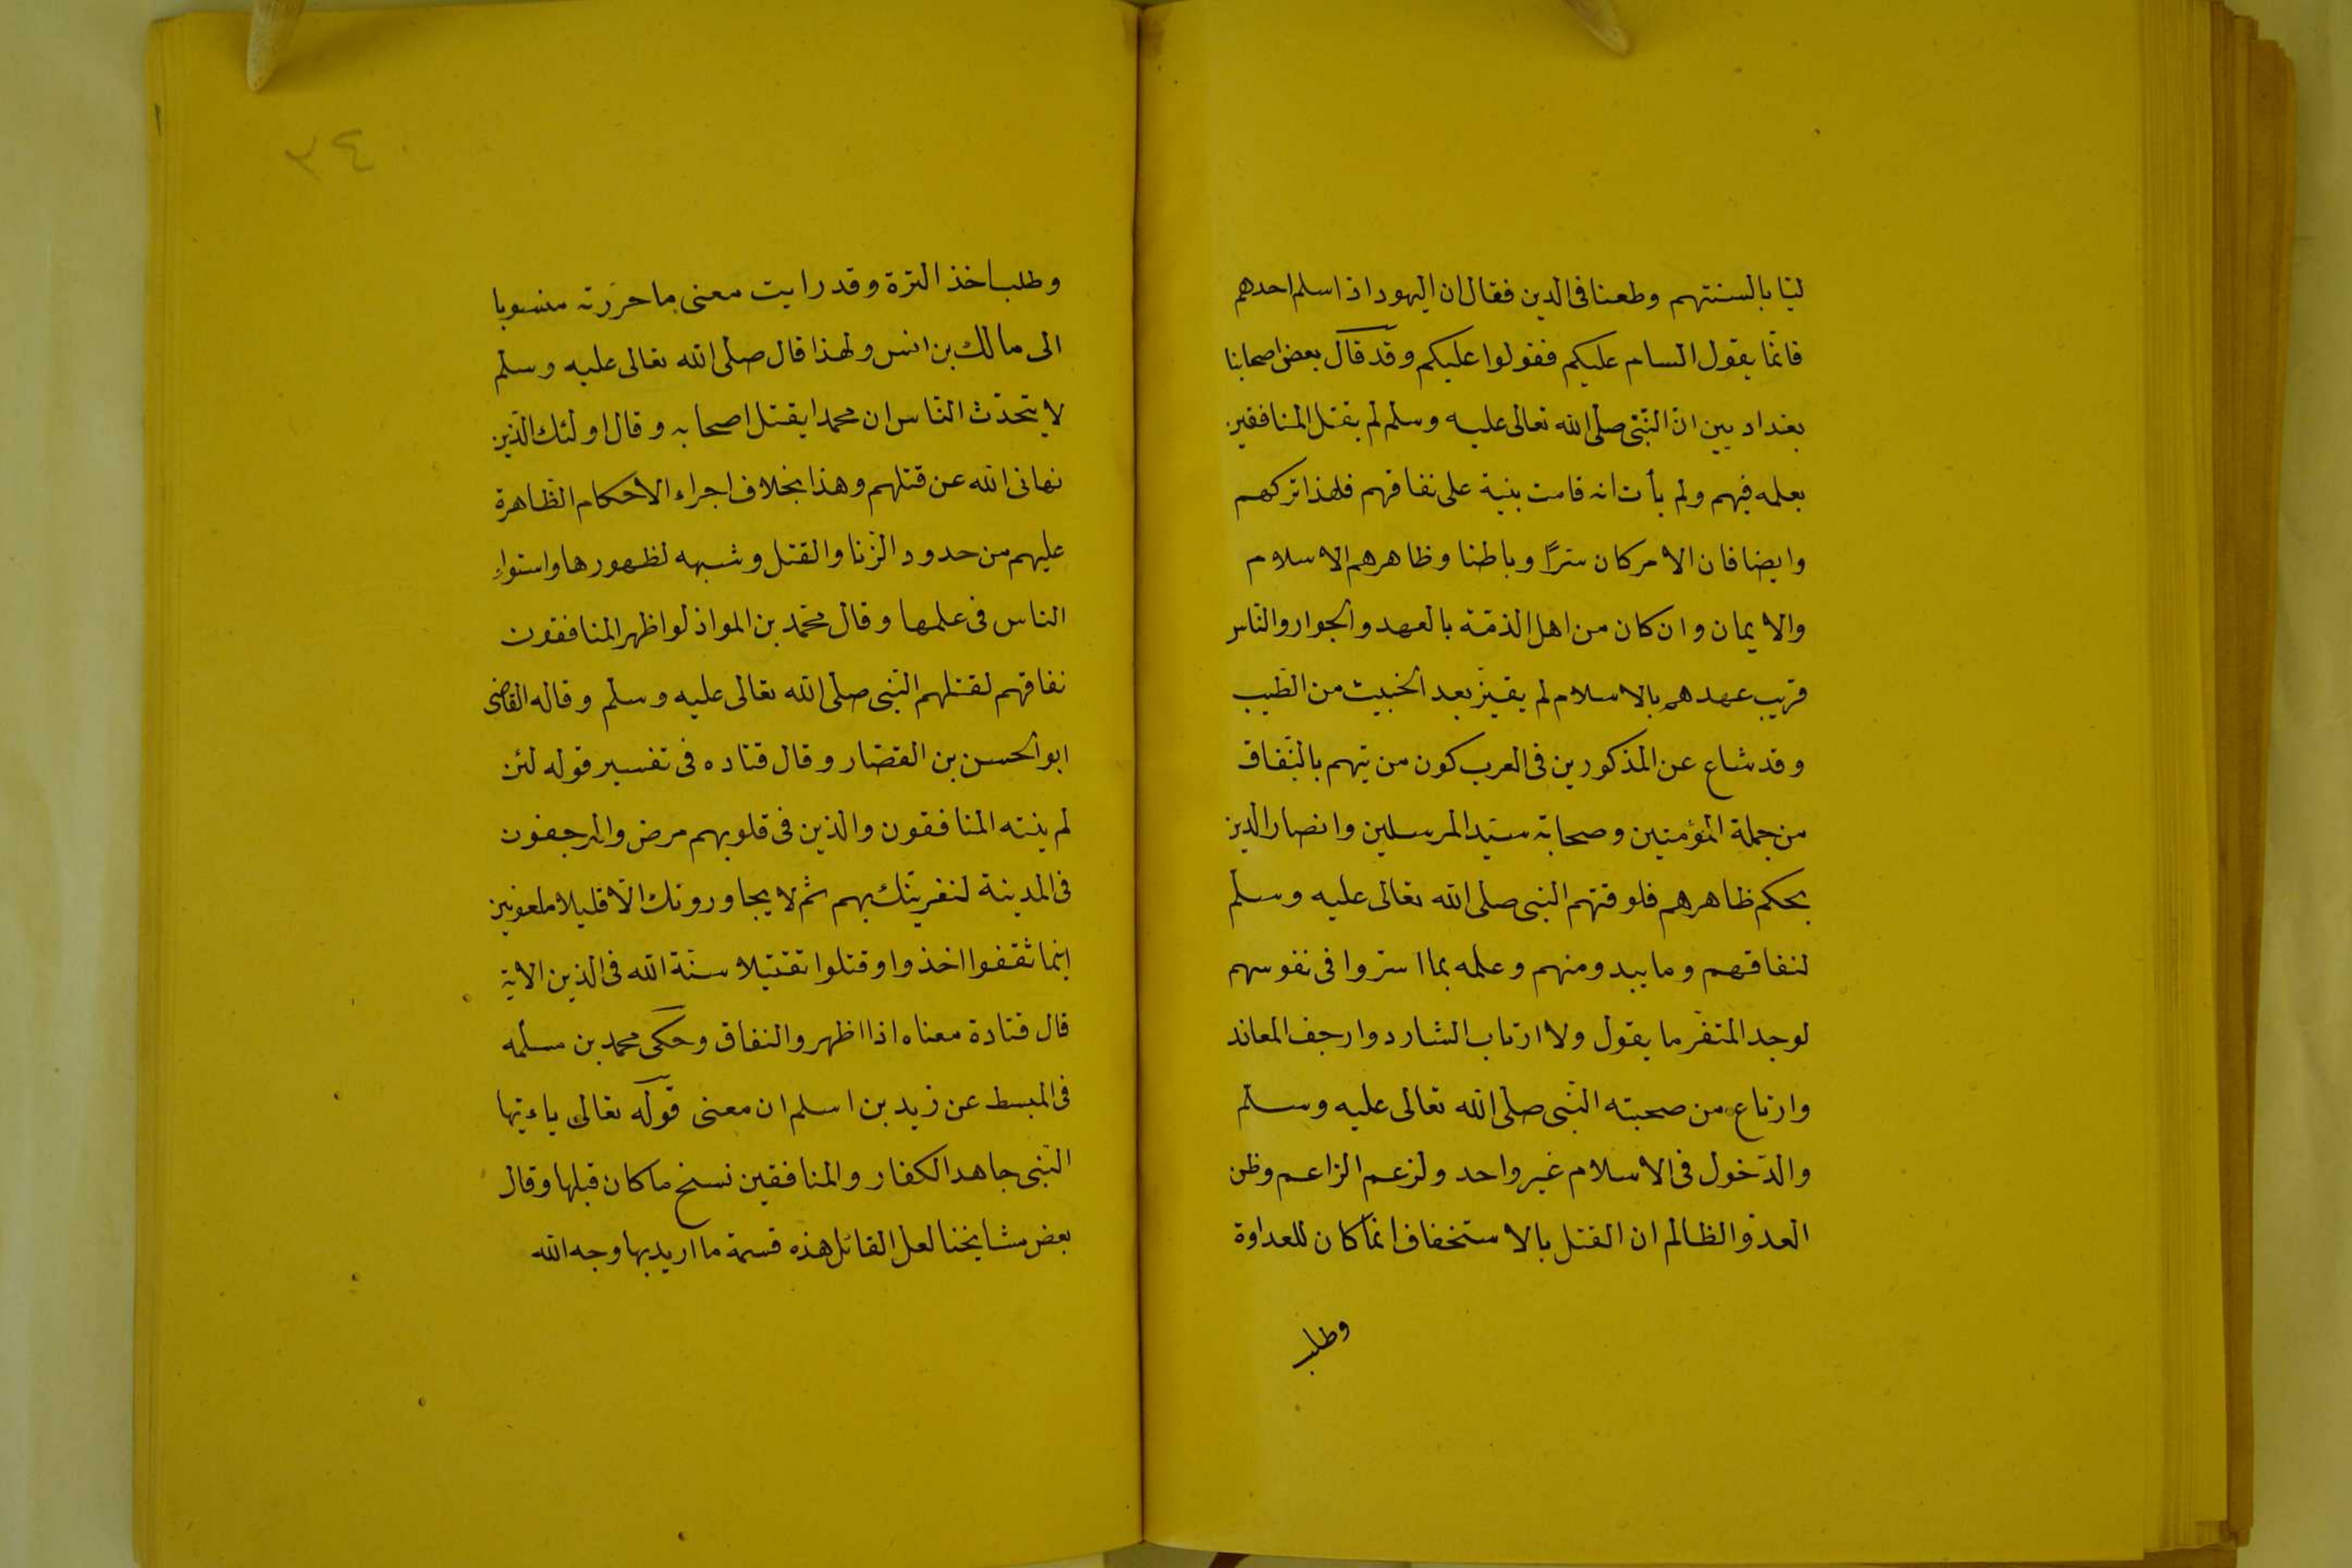 ليا بالسنتهم وطعنا فى الدين فقال ان اليهود اذا اسلم احدهم
فانّما يقول السام عليكم فقولوا عليكم وقد قال بعض اصحابنا
بغداد يين انّ النّبى صلى الله تعالى عليه وسلم لم يقتل المنافقين
بعلمه فيهم ولم يأت انه قامت بنية على نفاقهم فلهذا تركهم
وايضا فان الامر كان سرّا وباطنا وظاهرهم الاسلام
والايمان وان كان من اهل الذمّة بالعهد والجوار والنّاس
قريب عهدهم بالاسلام لم يقيّز بعد الخبيث من الطّيب
وقد شاع عن المذكورين فى العرب كون من يتهم بالنّفاق
من جملة المؤمنين وصحابة سيّد المرسلين وانصار الدين
بحكم ظاهرهم فلو قتهم النبى صلى الله تعالى عليه وسلم
لنفاقهم وما يبدو منهم وعلمه بما استروا فى نفوسهم
لوجد المنفّر ما يقول ولا ارتاب الشارد وارجف المعاند
وارتاع من صحبته النّبى صلى الله تعالى عليه وسلم
والدّخول فى الاسلام غير واحد ولزعم الزاعم وظن
العدوّ الظالم ان القتل بالاستخفاف انّما كان للعداوة
وطلب
٤٢
وطلب اخذ الترة وقد رايت معنى ما حرّرته منسوبا
الى مالك بن انس ولهذا قال صلى الله تعالى عليه وسلم
لا يتحدّث النّاس ان محمدا يقتل اصحابه وقال اولئك الّذين
نهانى الله عن قتلهم وهذا بخلاف اجراء الاحكام الظّاهرة
عليهم من حدود الزّنا والقتل وشبهه لظهورها واستواء
الناس فى علمها وقال محمّد بن المواذ لو اظهر المنافقون
نفاقهم لقتلهم النّبى صلى الله تعالى عليه وسلم وقاله القاضى
ابو الحسن بن القصّار وقال قتاده فى تفسير قوله لئن
لم ينته المنافقون والذين فى قلوبهم مرض والمرجفون
فى المدينة لنغرينّك بهم ثم لا يجاورونك الّا قليلا ملعونين
اينما ثقفوا اخذوا وقتلوا تقتيلا سنّة الله فى الذين الاية
قال قتادة معناه اذا اظهروا النفاق وحكى محمد بن مسلمه
فى المبسط عن زيد بن اسلم ان معنى قوله تعالى ياءيّها
النّبى جاهد الكفار والمنافقين نسخ ما كان قبلها وقال
بعض مشايخنا لعل القائل هذه قسمة ما اريد بها وجه الله